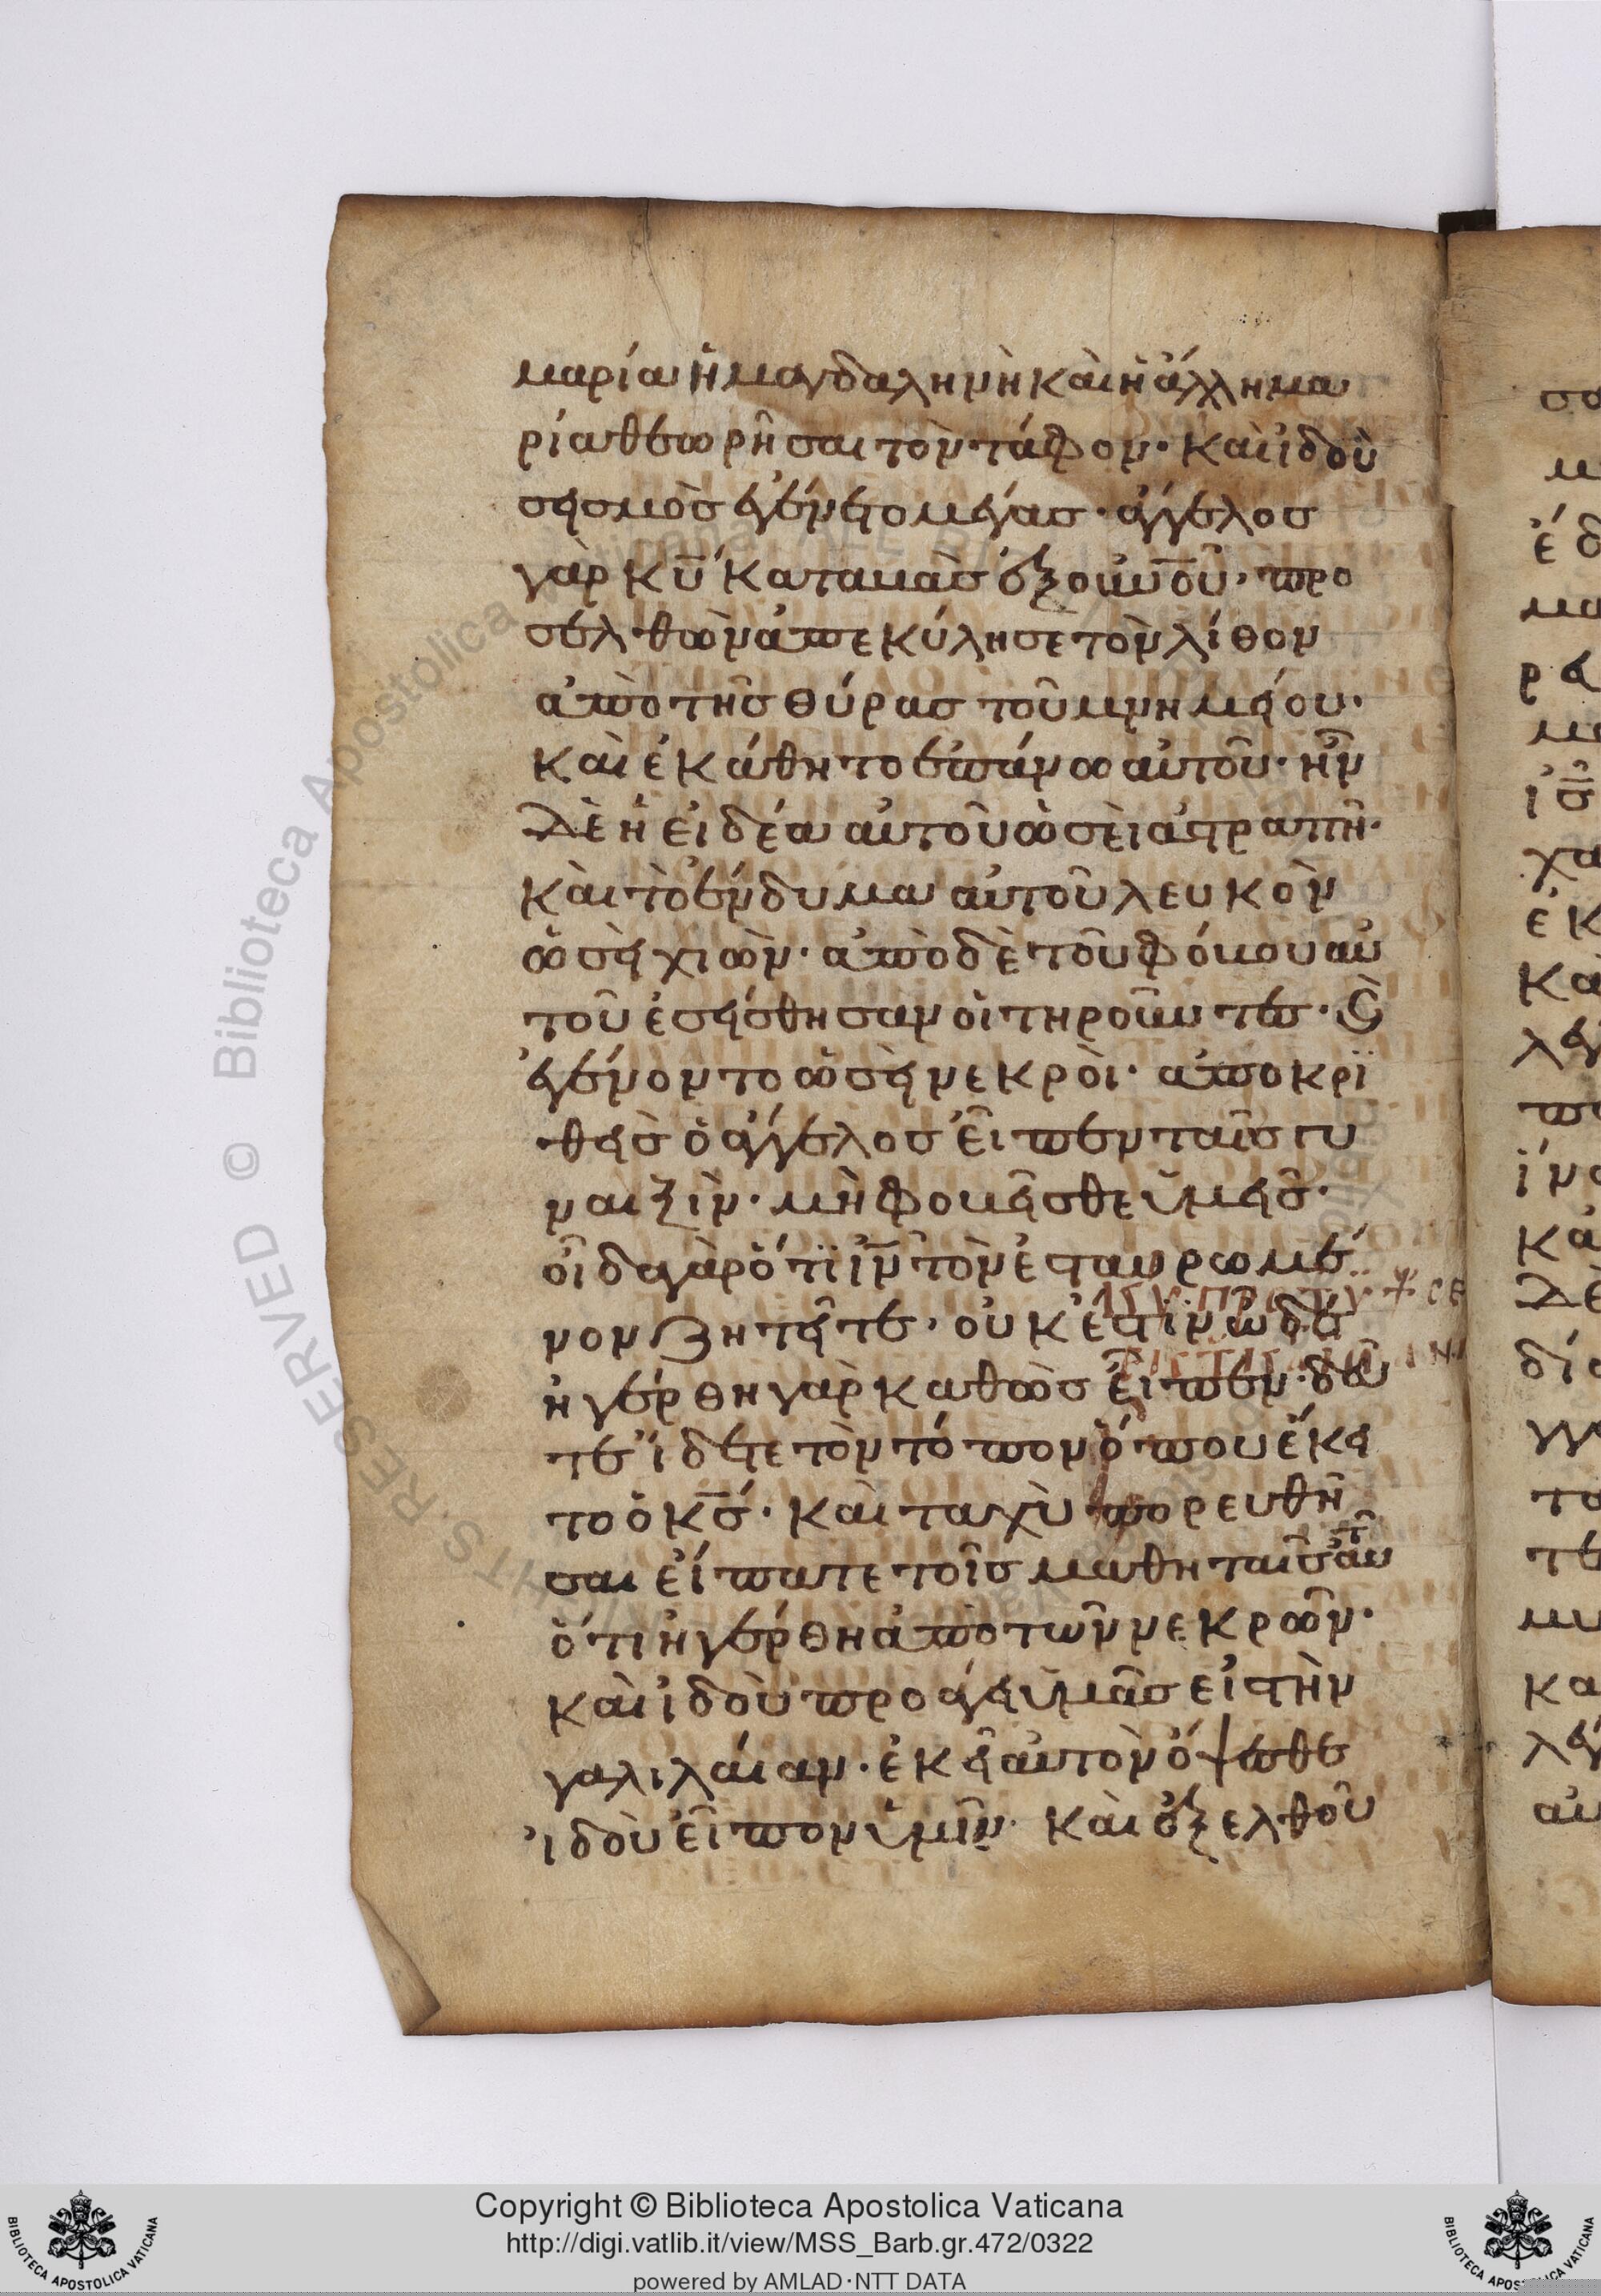 μαρία ἡ μαγδαληνὴ καὶ ἡ ἄλλη μα
ρία θεωρῆσαι τὸν τάφον· καὶ ἰδοὺ
σεισμὸσ ἐγένετο μέγασ· ἄγγελοσ
γὰρ κ̅υ̅ καταβὰσ ἐξ ο̅υ̅ν̅ο̅υ̅· προ
σελθὼν ἀπεκύλησε τὸν λίθον
ἀπὸ τῆσ θύρασ τοῦ μνημείου·
καὶ ἐκάθητο ἐπάνω αὐτοῦ· ἦν
δὲ ἡ εἰδέα αὐτοῦ ὡσεὶ ἀστραπῆ·
καὶ τὸ ἔνδυμα αὐτοῦ λευκὸν
ὡσεὶ χιὼν· ἀπὸ δὲ τοῦ φόβου αὐ
τοῦ ἐσείσθησαν οἱ τηροῦντεσ· ϗ̀
ἐγένοντο ὡσεὶ νεκρὸι· ἀποκρϊ
θεὶσ ὁ ἄγγελοσ εἶπεν ταῖσ γυ
ναιξὶν· μὴ φοβεῖσθε ὑμεῖσ·
οἶδα γὰρ ὅτϊ ι̅ν̅ τὸν ἐσταυρωμέ
νον ζητεῖτε· οὐκ ἔστιν ὧδε
ἠγέρθη γὰρ καθὼσ εἶπεν· δεῦ
τε ἴδετε τὸν τόπον ὅπου ἔκει
το ὁ κ̅σ̅· καὶ ταχὺ πορευθῆ
σαι εἴπατε τοῖσ μαθηταῖσ αὐτ
ὅτι ἠγέρθη ἀπὸ τῶν νεκρῶν·
καὶ ἰδοὺ προάγει ὑμᾶσ εἰστὴν
γαλιλάιαν· ἐκεῖ αὐτὸν ὄψεσθε
ἰδοὺ εἶπον ὑμῖν· καὶ ἐξελθοῦ
Copyright © Biblioteca Apostolica Vaticana
http://digi.vatlib.it/view/MSS_Barb.gr.472/0322
powered by AMLAD·NTT DATA